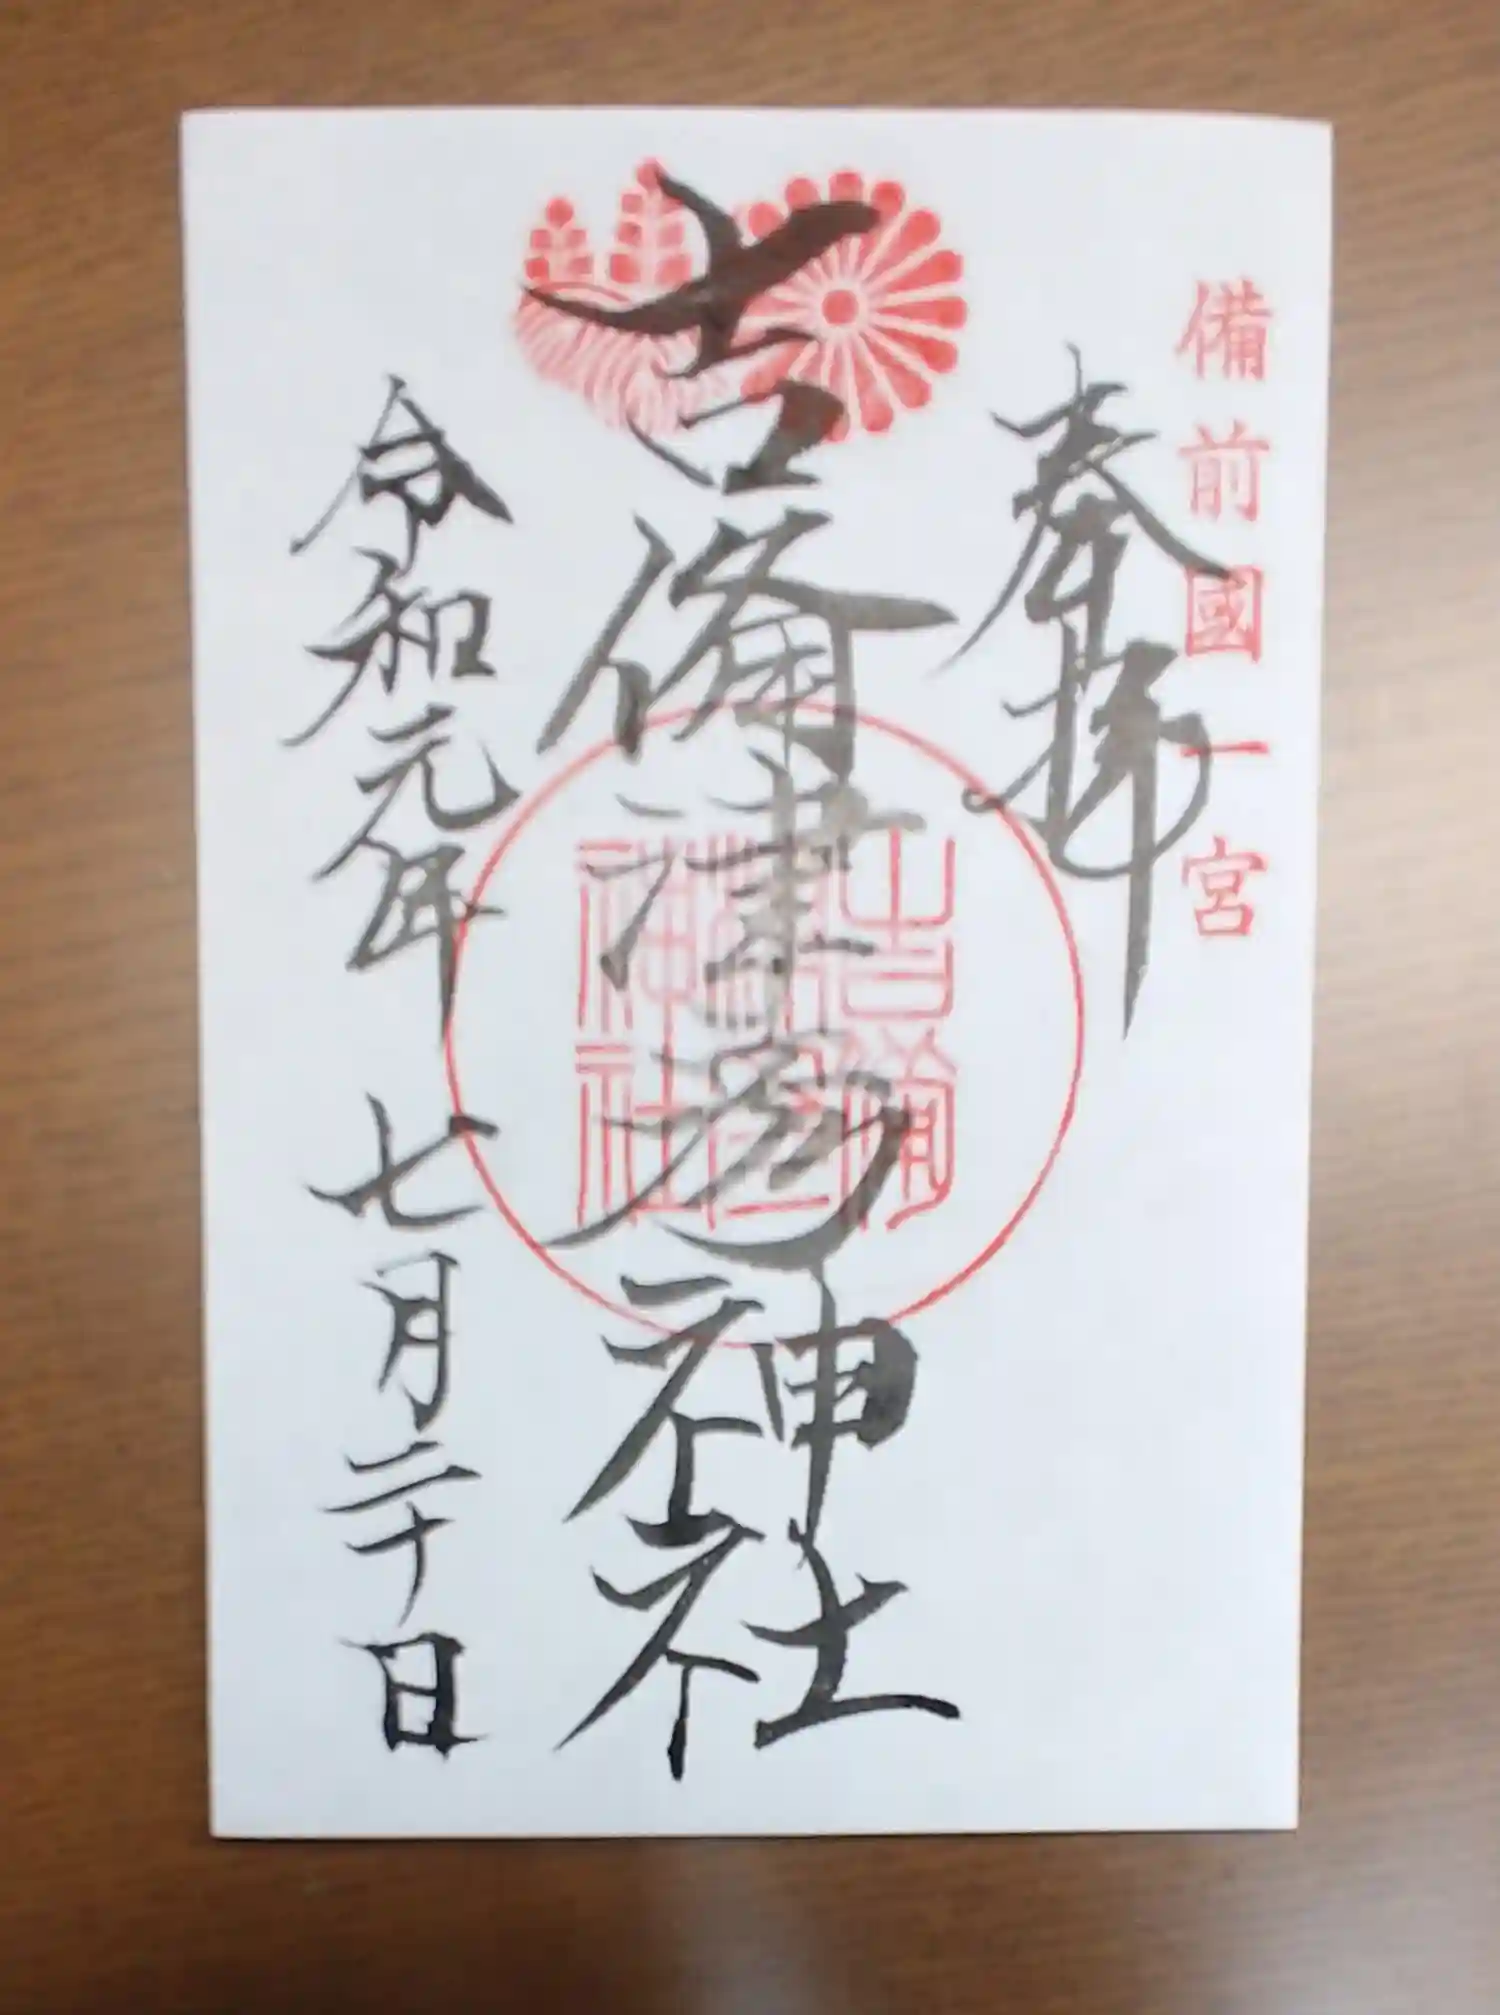 備前國一宮
奉拝
吉備津彦神社
吉備
津彦
神社
令和元年 七月二十日